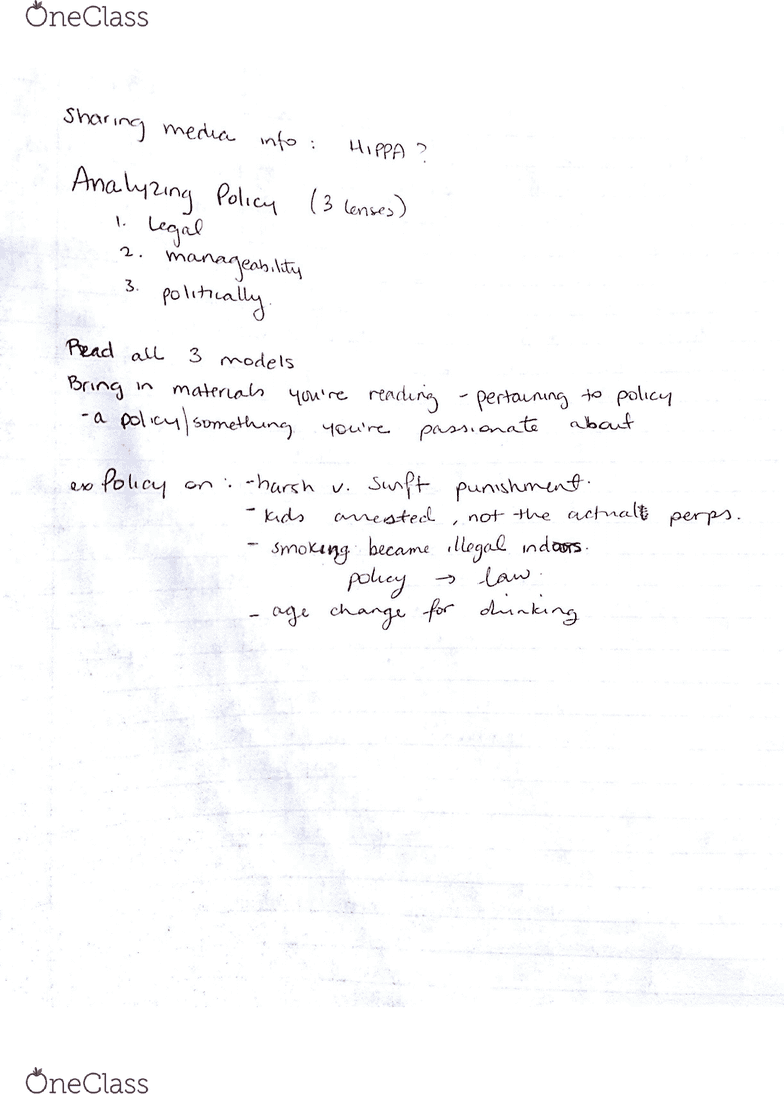 OneClass
Sharing media info : HIPPA ?
Analyzing Policy (3 lenses)
1. Legal
2. manageability
3. politically.
Read all 3 models
Bring in materials you're reading - pertaining to policy
- a policy/something you're passionate about
ex Policy on : - harsh v. Swift punishment.
- kids arrested, not the actual perps.
- smoking became illegal indoors.
policy → law.
- age change for drinking
OneClass